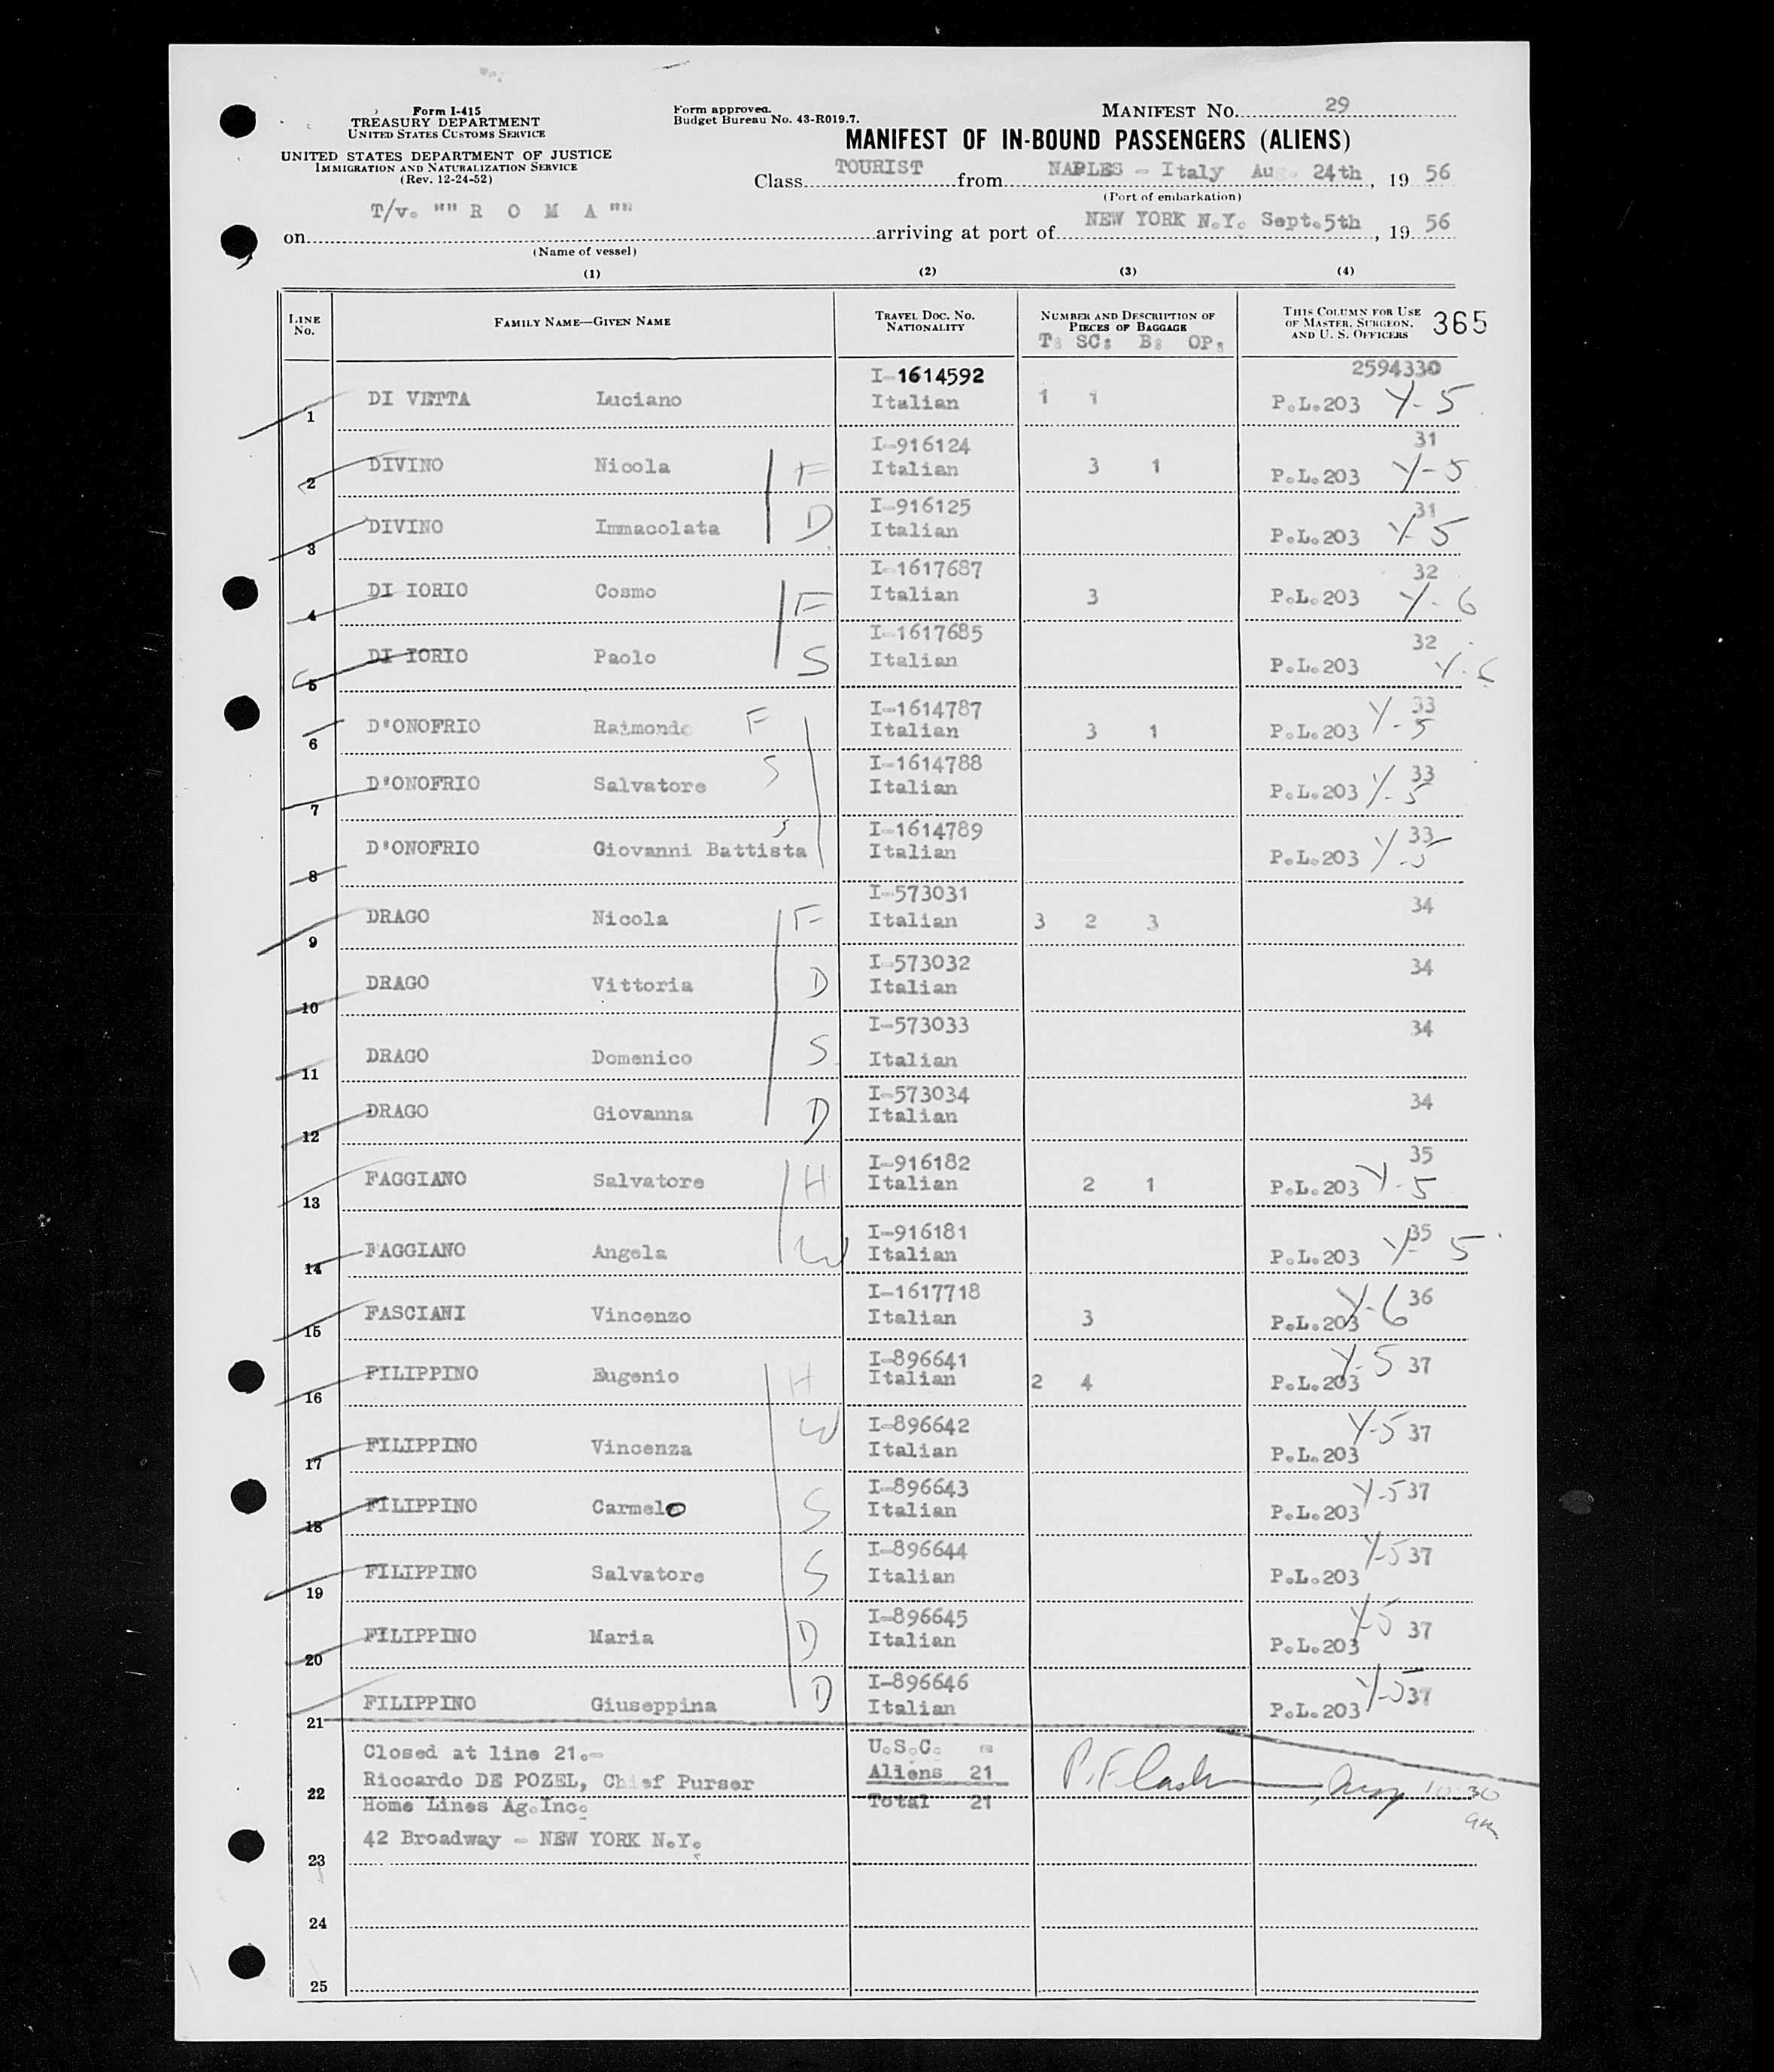 Form I-415
TREASURY DEPARTMENT
UNITED STATES CUSTOMS SERVICE
UNITED STATES DEPARTMENT OF JUSTICE
IMMIGRATION AND NATURALIZATION SERVICE
(Rev. 12-24-52)
Form approved.
Budget Bureau No. 43-R019.7.
MANIFEST No. 29
MANIFEST OF IN-BOUND PASSENGERS (ALIENS)
Class TOURIST from NAPLES - Italy Aug. 24th, 19 56
(Port of embarkation)
on T/v. "" R O M A "" arriving at port of NEW YORK N.Y. Sept.5th, 19 56
(Name of vessel)
(1) (2) (3) (4)
LINE No. FAMILY NAME—GIVEN NAME TRAVEL DOC. No. NATIONALITY NUMBER AND DESCRIPTION OF PIECES OF BAGGAGE T: SC: B: OP: THIS COLUMN FOR USE OF MASTER, SURGEON, AND U. S. OFFICERS 365
I-1614592 2594330
1 DI VETTA Luciano Italian 1 1 P.L.203 Y-5
I-916124 31
2 DIVINO Nicola F Italian 3 1 P.L.203 Y-5
I-916125 31
3 DIVINO Immacolata D Italian P.L.203 Y-5
I-1617687 32
4 DI IORIO Cosmo F Italian 3 P.L.203 Y-6
I-1617685 32
5 DI IORIO Paolo S Italian P.L.203 Y-6
I-1614787 33
6 D'ONOFRIO Raimondo F Italian 3 1 P.L.203 Y-5
I-1614788 33
7 D'ONOFRIO Salvatore S Italian P.L.203 Y-5
I-1614789 33
8 D'ONOFRIO Giovanni Battista S Italian P.L.203 Y-5
I-573031 34
9 DRAGO Nicola F Italian 3 2 3
I-573032 34
10 DRAGO Vittoria D Italian
I-573033 34
11 DRAGO Domenico S Italian
I-573034 34
12 DRAGO Giovanna D Italian
I-916182 35
13 FAGGIANO Salvatore H Italian 2 1 P.L.203 Y-5
I-916181 35
14 FAGGIANO Angela W Italian P.L.203 Y-5
I-1617718 36
15 FASCIANI Vincenzo Italian 3 P.L.203 Y-6
I-896641 37
16 FILIPPINO Eugenio H Italian 2 4 P.L.203 Y-5
I-896642 37
17 FILIPPINO Vincenza W Italian P.L.203 Y-5
I-896643 37
18 FILIPPINO Carmelo S Italian P.L.203 Y-5
I-896644 37
19 FILIPPINO Salvatore S Italian P.L.203 Y-5
I-896645 37
20 FILIPPINO Maria D Italian P.L.203 Y-5
I-896646 37
21 FILIPPINO Giuseppina D Italian P.L.203 Y-5
Closed at line 21.- U.S.C. -
Riccardo DE POZEL, Chief Purser Aliens 21
22 Home Lines Ag.Inc. Total 21 10:30 am
42 Broadway - NEW YORK N.Y.
23
24
25